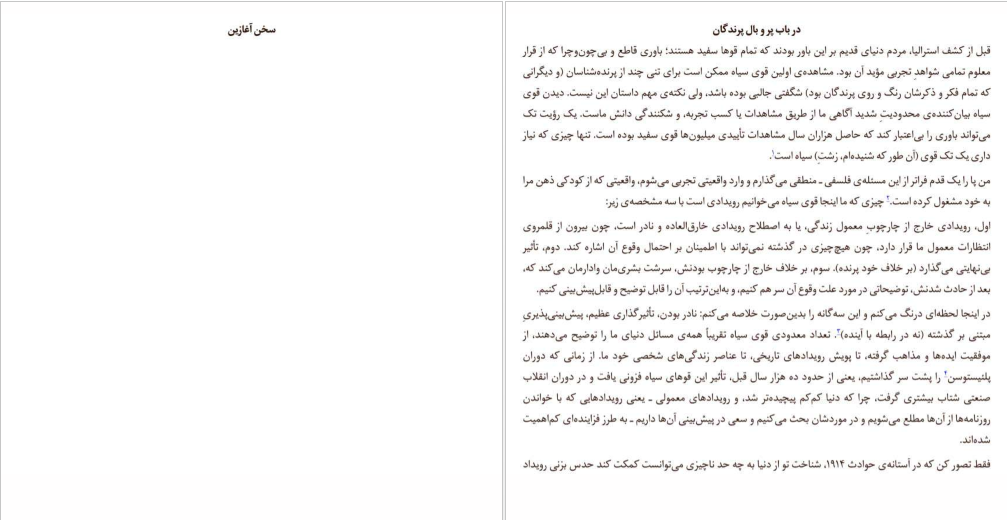 سخن آغازین
در باب پر و بال پرندگان
قبل از کشف استرالیا، مردم دنیای قدیم بر این باور بودند که تمام قوها سفید هستند؛ باوری قاطع و بی‌چون‌وچرا که از قرار
معلوم تمامی شواهدِ تجربی مؤید آن بود. مشاهده‌ی اولین قوی سیاه ممکن است برای تنی چند از پرنده‌شناسان (و دیگرانی
که تمام فکر و ذکرشان رنگ و روی پرندگان بود) شگفتی جالبی بوده باشد، ولی نکته‌ی مهم داستان این نیست. دیدن قوی
سیاه بیان‌کننده‌ی محدودیتِ شدید آگاهی ما از طریق مشاهدات یا کسب تجربه، و شکنندگی دانش ماست. یک رؤیت تک
می‌تواند باوری را بی‌اعتبار کند که حاصل هزاران سال مشاهدات تأییدی میلیون‌ها قوی سفید بوده است. تنها چیزی که نیاز
داری یک تک قوی (آن طور که شنیده‌ام، زشتِ) سیاه است۱.
من پا را یک قدم فراتر از این مسئله‌ی فلسفی ـ منطقی می‌گذارم و وارد واقعیتی تجربی می‌شوم، واقعیتی که از کودکی ذهن مرا
به خود مشغول کرده است.۲ چیزی که ما اینجا قوی سیاه می‌خوانیم رویدادی است با سه مشخصه‌ی زیر:
اول، رویدادی خارج از چارچوبِ معمول زندگی، یا به اصطلاح رویدادی خارق‌العاده و نادر است، چون بیرون از قلمروی
انتظارات معمول ما قرار دارد، چون هیچ‌چیزی در گذشته نمی‌تواند با اطمینان بر احتمال وقوع آن اشاره کند. دوم، تأثیر
بی‌نهایتی می‌گذارد (بر خلاف خود پرنده). سوم، بر خلاف خارج از چارچوب بودنش، سرشت بشری‌مان وادارمان می‌کند که،
بعد از حادث شدنش، توضیحاتی در مورد علت وقوع آن سر هم کنیم، و به‌این‌ترتیب آن را قابل توضیح و قابل‌پیش‌بینی کنیم.
در اینجا لحظه‌ای درنگ می‌کنم و این سه‌گانه را بدین‌صورت خلاصه می‌کنم: نادر بودن، تأثیرگذاری عظیم، پیش‌بینی‌پذیریِ
مبتنی بر گذشته (نه در رابطه با آینده)۳. تعداد معدودی قوی سیاه تقریباً همه‌ی مسائل دنیای ما را توضیح می‌دهند، از
موفقیت ایده‌ها و مذاهب گرفته، تا پویش رویدادهای تاریخی، تا عناصر زندگی‌های شخصی خود ما. از زمانی که دوران
پلئیستوسن۴ را پشت سر گذاشتیم، یعنی از حدود ده هزار سال قبل، تأثیر این قوهای سیاه فزونی یافت و در دوران انقلاب
صنعتی شتاب بیشتری گرفت، چرا که دنیا کم‌کم پیچیده‌تر شد، و رویدادهای معمولی ـ یعنی رویدادهایی که با خواندن
روزنامه‌ها از آن‌ها مطلع می‌شویم و در موردشان بحث می‌کنیم و سعی در پیش‌بینی آن‌ها داریم ـ به طرز فزاینده‌ای کم‌اهمیت
شده‌اند.
فقط تصور کن که در آستانه‌ی حوادث ۱۹۱۴، شناخت تو از دنیا به چه حد ناچیزی می‌توانست کمکت کند حدس بزنی رویداد